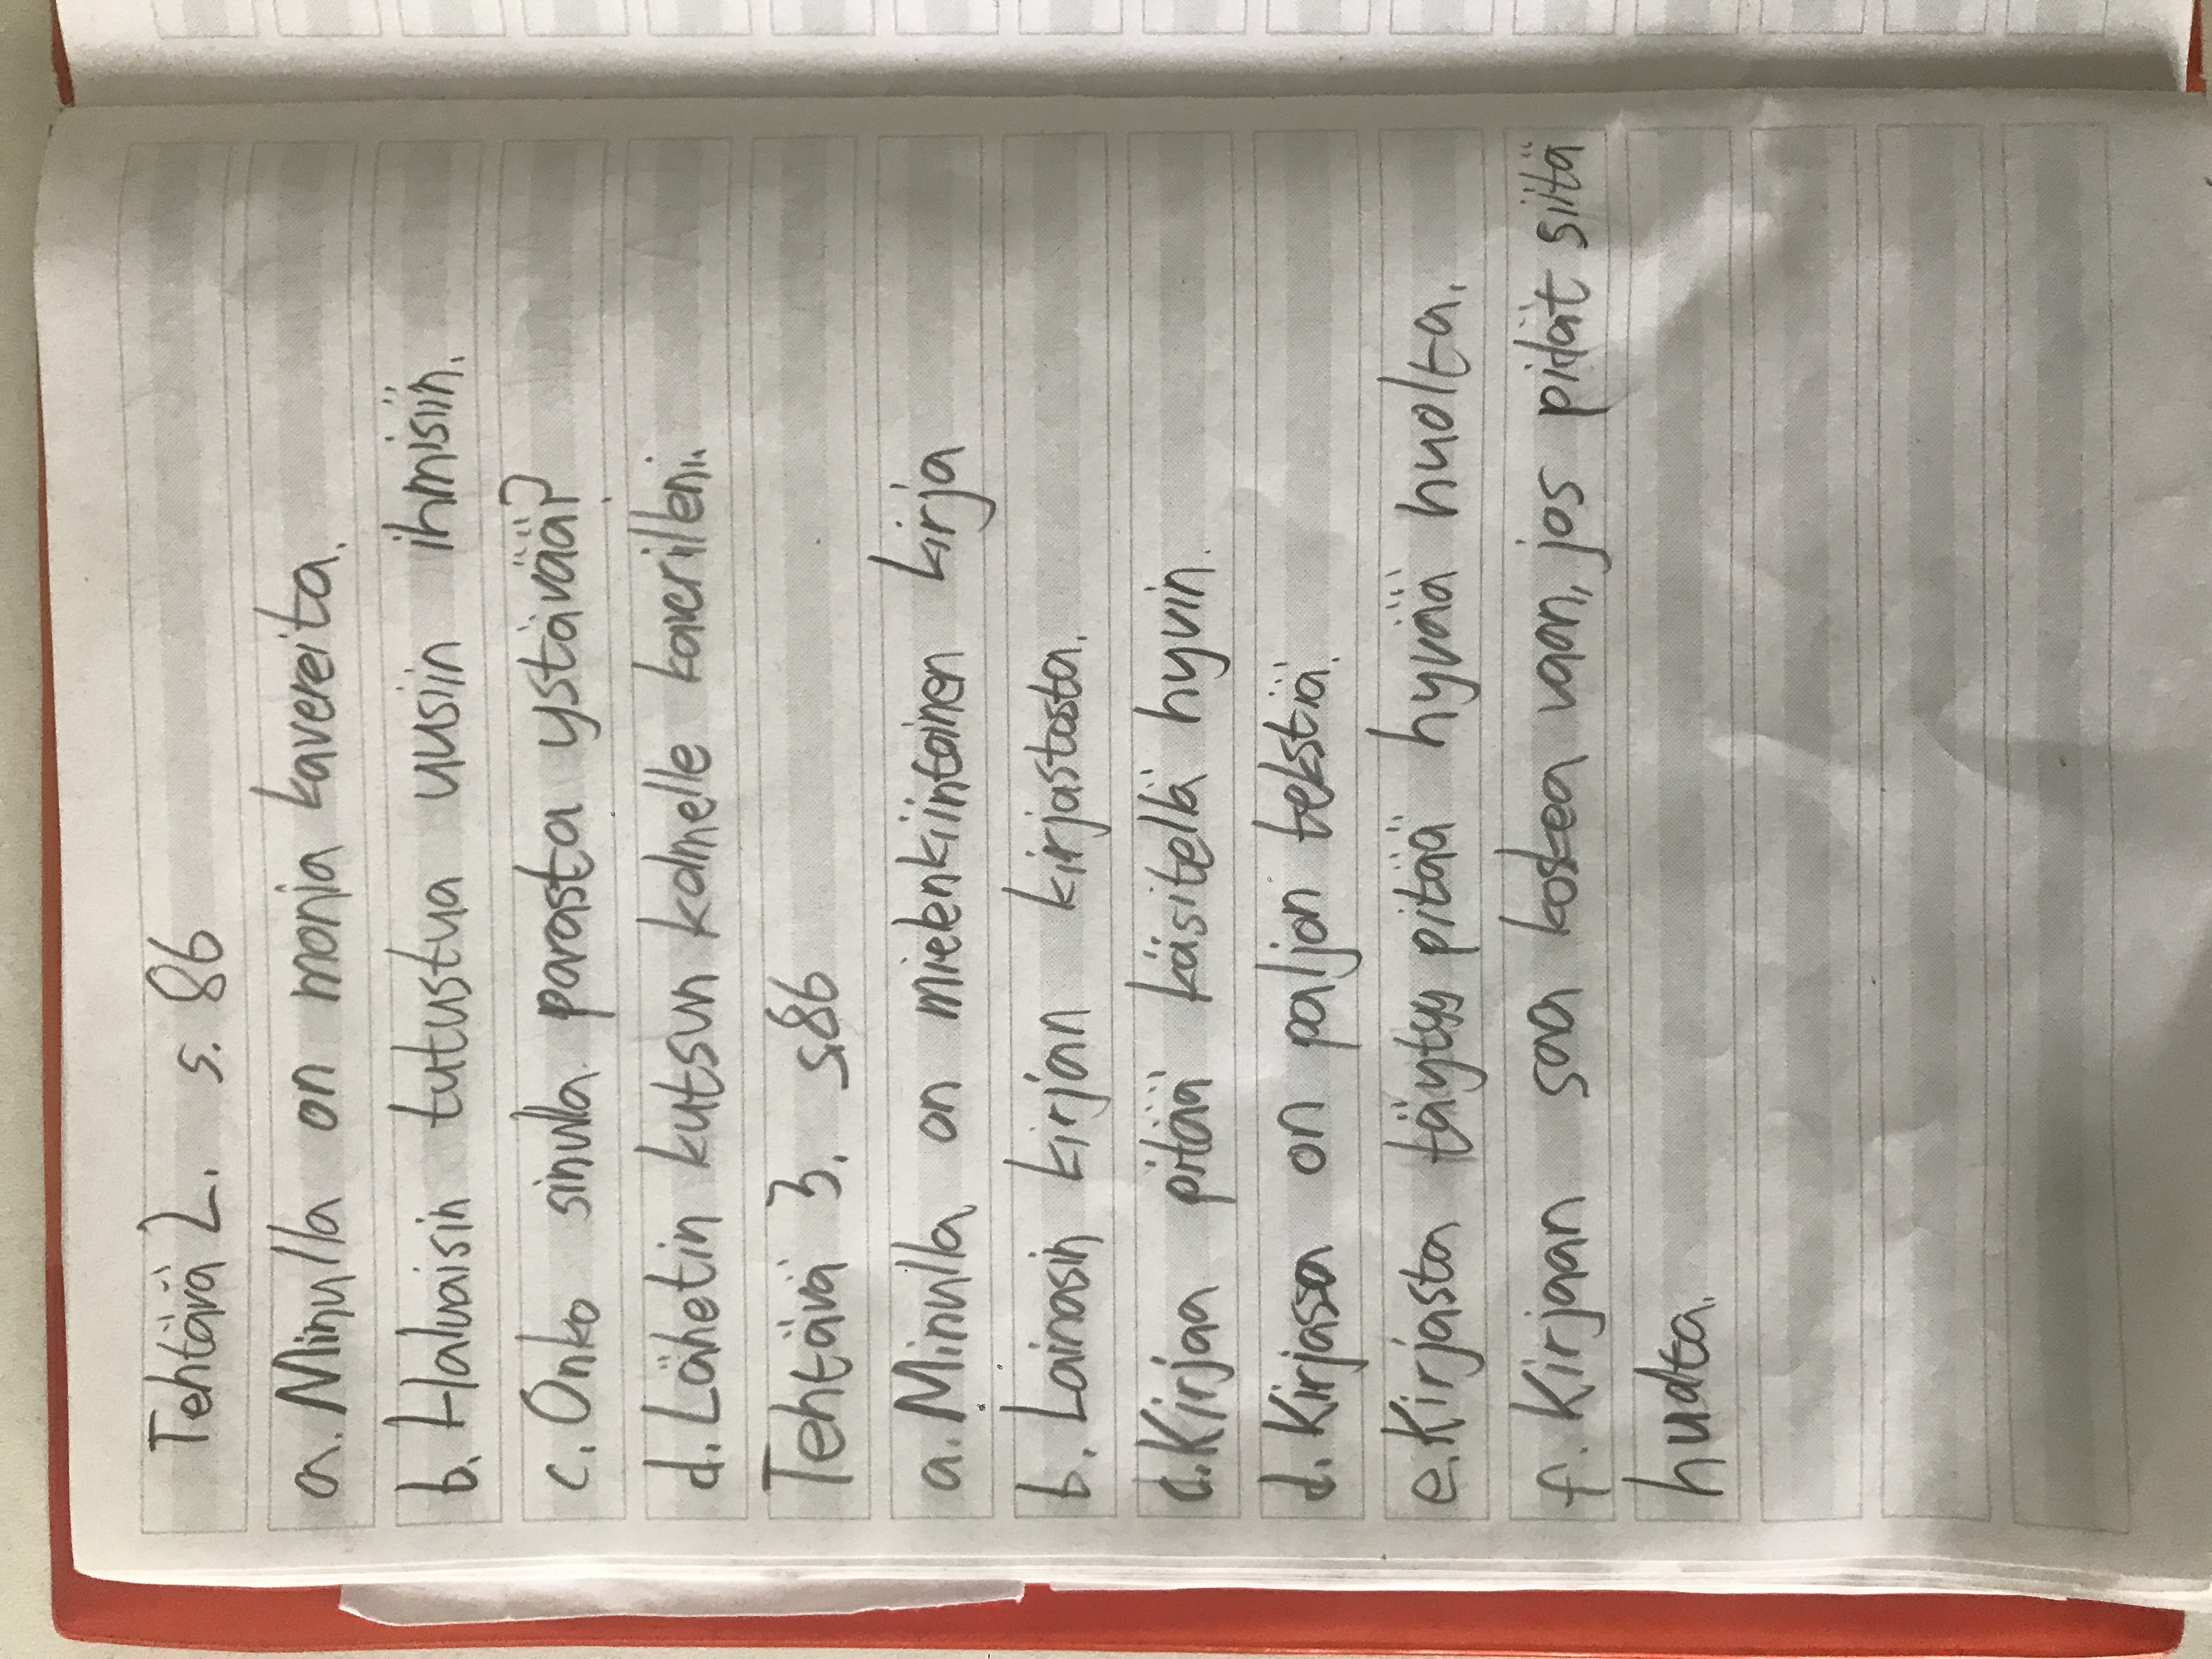 Tehtävä 2. s. 86
a. Minulla on monia kavereita.
b. Haluaisin tutustua uusiin ihmisiin.
c. Onko sinulla parasta ystävää?
d. Lähetin kutsun kolmelle kaverilleni.
Tehtävä 3. s.86
a. Minulla on mielenkiintoinen kirja
b. Lainasin kirjan kirjastosta.
c. Kirjaa pitää käsitellä hyvin.
d. Kirjassa on paljon tekstiä.
e. Kirjasta täytyy pitää hyvää huolta.
f. Kirjaan saa koskea vaan, jos pidät siitä
huolta.